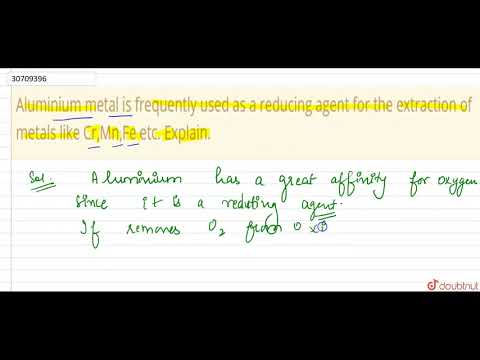 30709396
Aluminium metal is frequently used as a reducing agent for the extraction of
metals like Cr,Mn,Fe etc. Explain.
Sol: Aluminium has a great affinity for oxygen
since it is a reducing agent.
If removes O2 from ox
doubtnut